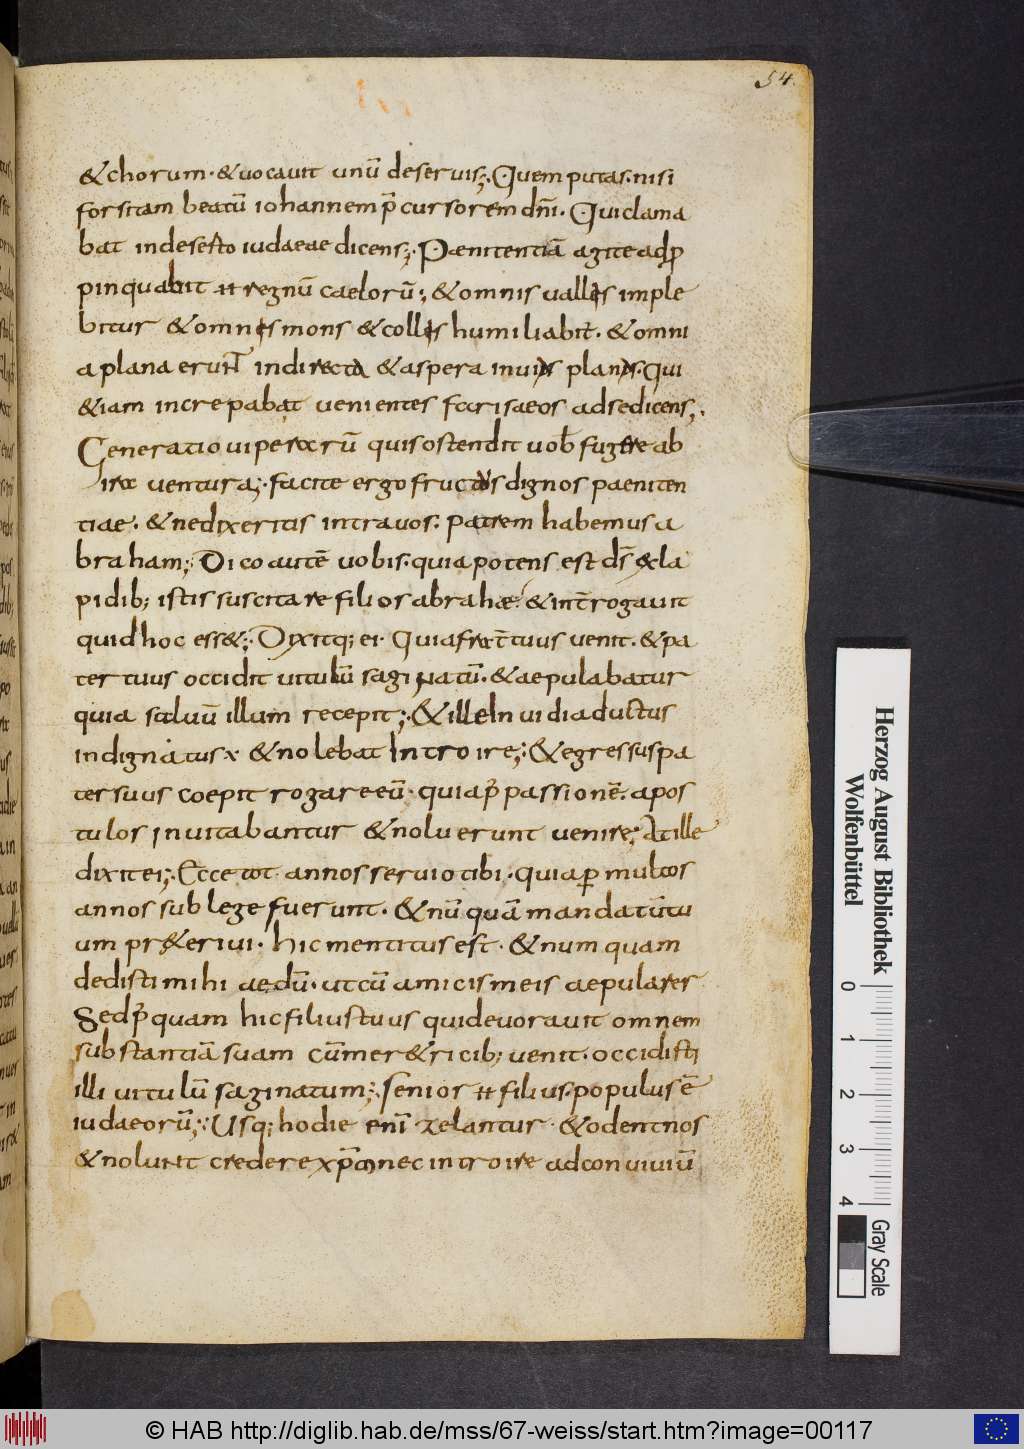 54.
& chorum · & uocauit unū deseruis;. Quem putas · nisi
forsitam beatū iohannem p̄cursorem dn̄i · Qui clama
bat indeserto iudaeae dicens;· Paenitentiā agite adp
pinquabit ... regnū caelorū; & omnis uallis imple
bitur & omnis mons & collis humiliabit̄ · & omni
a plana erunt̄ indirecta & aspera inuias planas · qui
& iam increpabat uenientes farisaeos adse dicens;·
Generatio uiperarū quis ostendit uob̄ fugere ab
ira uentura;· facite ergo fructus dignos paeniten
tiae · & nedixeritis intrauos · patrem habemus a
braham;· Dico autē uobis · quia potens est ds̄ &la
pidib; istis suscitare filios abrahae · & int̄rogauit
quid hoc ess&;· Dixitq; ei · Quia frat̄ tuus uenit · & pa
ter tuus occidit uitulū saginatū · & aepulabatur
quia saluū illum recepit;· & ille In uidia ductus
indignatus & nolebat Introire;· & egressus pa
ter suus coepit rogare eū · quia p̄ passionē · apos
tulos inuitabantur & noluerunt uenire;· At ille
dixit ei;· Ecce tot annos seruio tibi · quia p multos
annos sub lege fuerunt · & nū quā mandatū tu
um pr&eriui · hic mentitus est · & num quam
dedisti mihi aedū · ut cū amicis meis aepularer
Sed p̄quam hic filius tuus qui deuorauit omnem
substantiā suam cū mer&ricib; uenit · occidisti
illi uitulū saginatum;· senior ... filius · populus ē
iudaeorū;· Usq; hodie enī zelantur · & odent nos
& nolunt credere xp̄o nec introire ad conuiuiū
Herzog August Bibliothek
Wolfenbüttel
0 1 2 3 4
Gray Scale
© HAB http://diglib.hab.de/mss/67-weiss/start.htm?image=00117